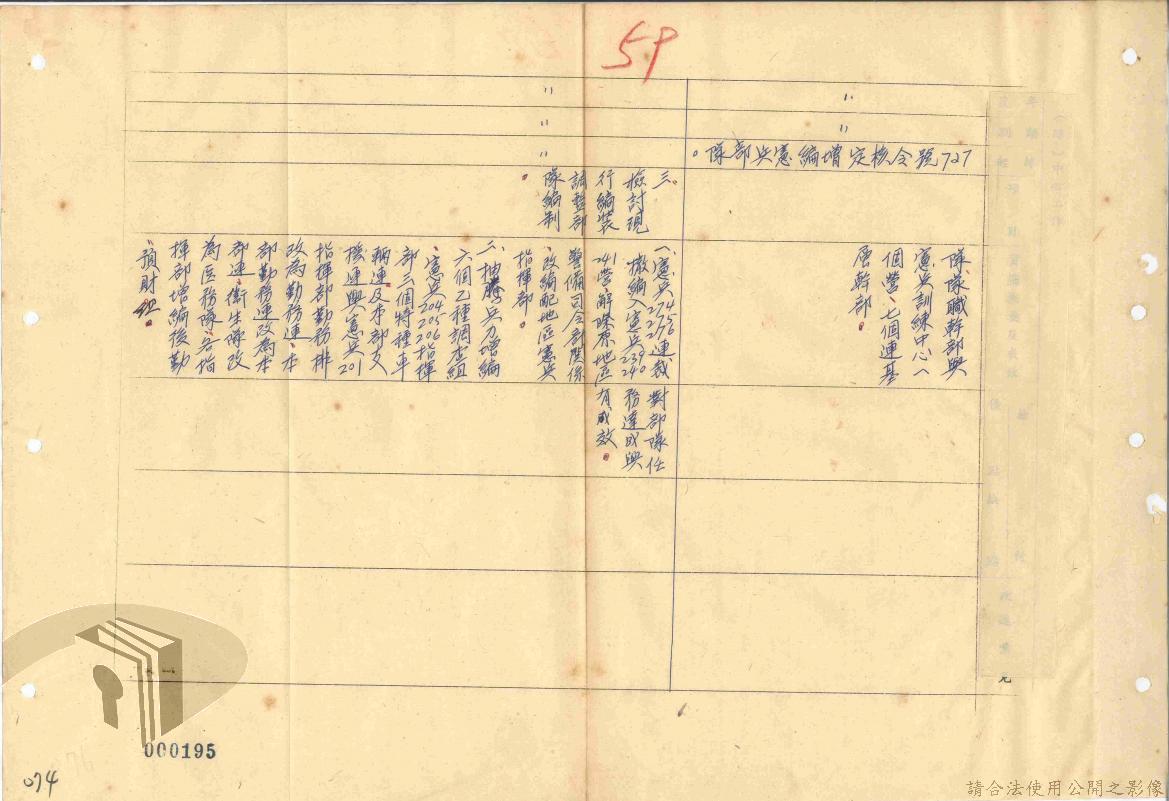 59
〃
〃
727號令核定增編憲兵部隊。
隊、隊職幹部與
憲兵訓練中心八
個營、七個連基
層幹部。
〃
〃
〃
三。
檢討現
行編裝
調整部
隊編制。
一、憲兵274 275 276連裁
撤編入憲兵239 240
241營、解除原地區
警備司令部關係
、改編配地區憲兵
指揮部。
二、抽騰兵力增編
六個乙種調查組
、憲兵204 205 206指揮
部三個特種車
輛連及本部支
援連與憲兵201
指揮部勤務排
改為勤務連、本
部勤務連改為本
部連、衛生隊改
為医務隊、各指
揮部增編後勤
、預財組。
對部隊任
務達成與
有成效。
000195
074
請合法使用公開之影像